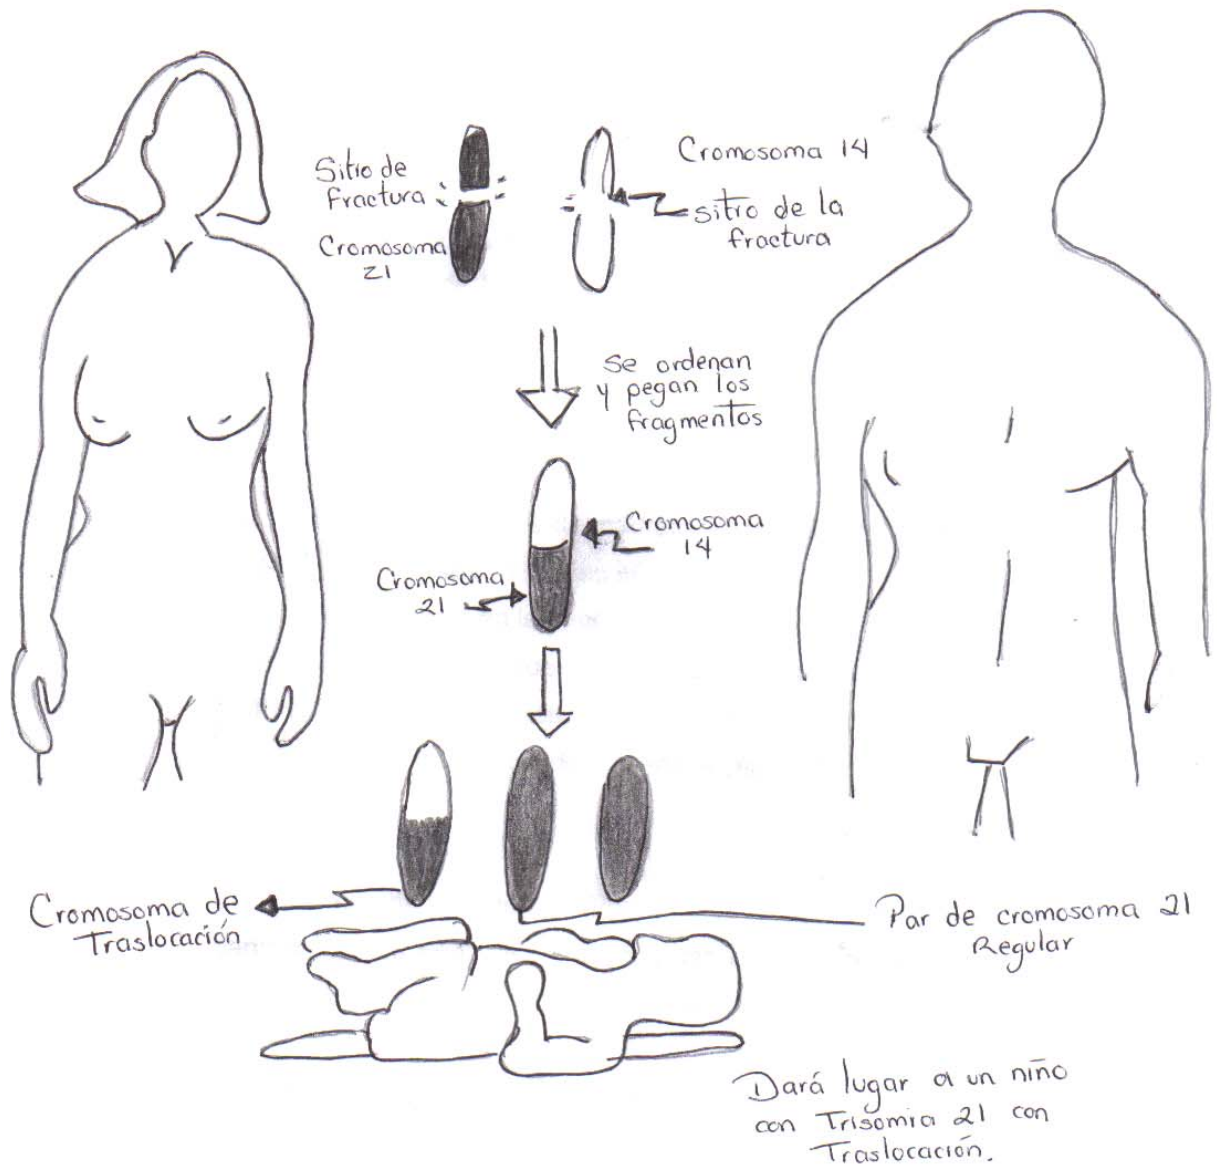 Sitio de
fractura
Cromosoma
21
Cromosoma 14
sitio de la
fractura
Se ordenan
y pegan los
fragmentos
Cromosoma
14
Cromosoma
21
Cromosoma de
Traslocación
Par de cromosoma 21
Regular
Dará lugar a un niño
con Trisomia 21 con
Traslocación.